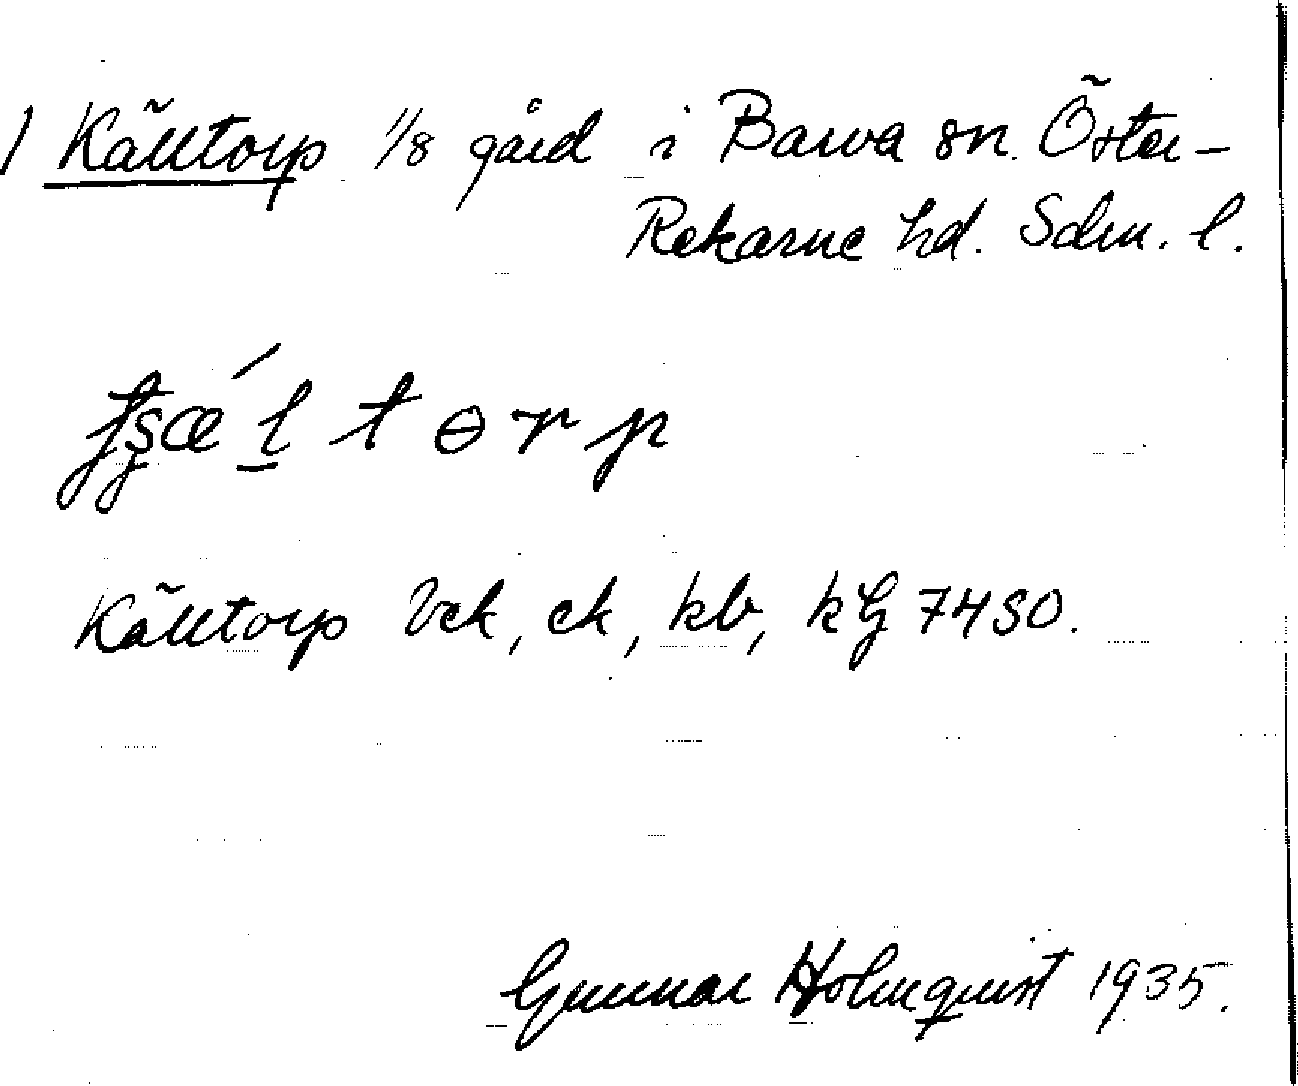 1 Källtorp 1/8 gård i Barva sn. Öster-
Rekarne hd. Sdm. l.
Källtorp Vck, ck, kb, kG 7430.
Gunnar Holmquist 1935.